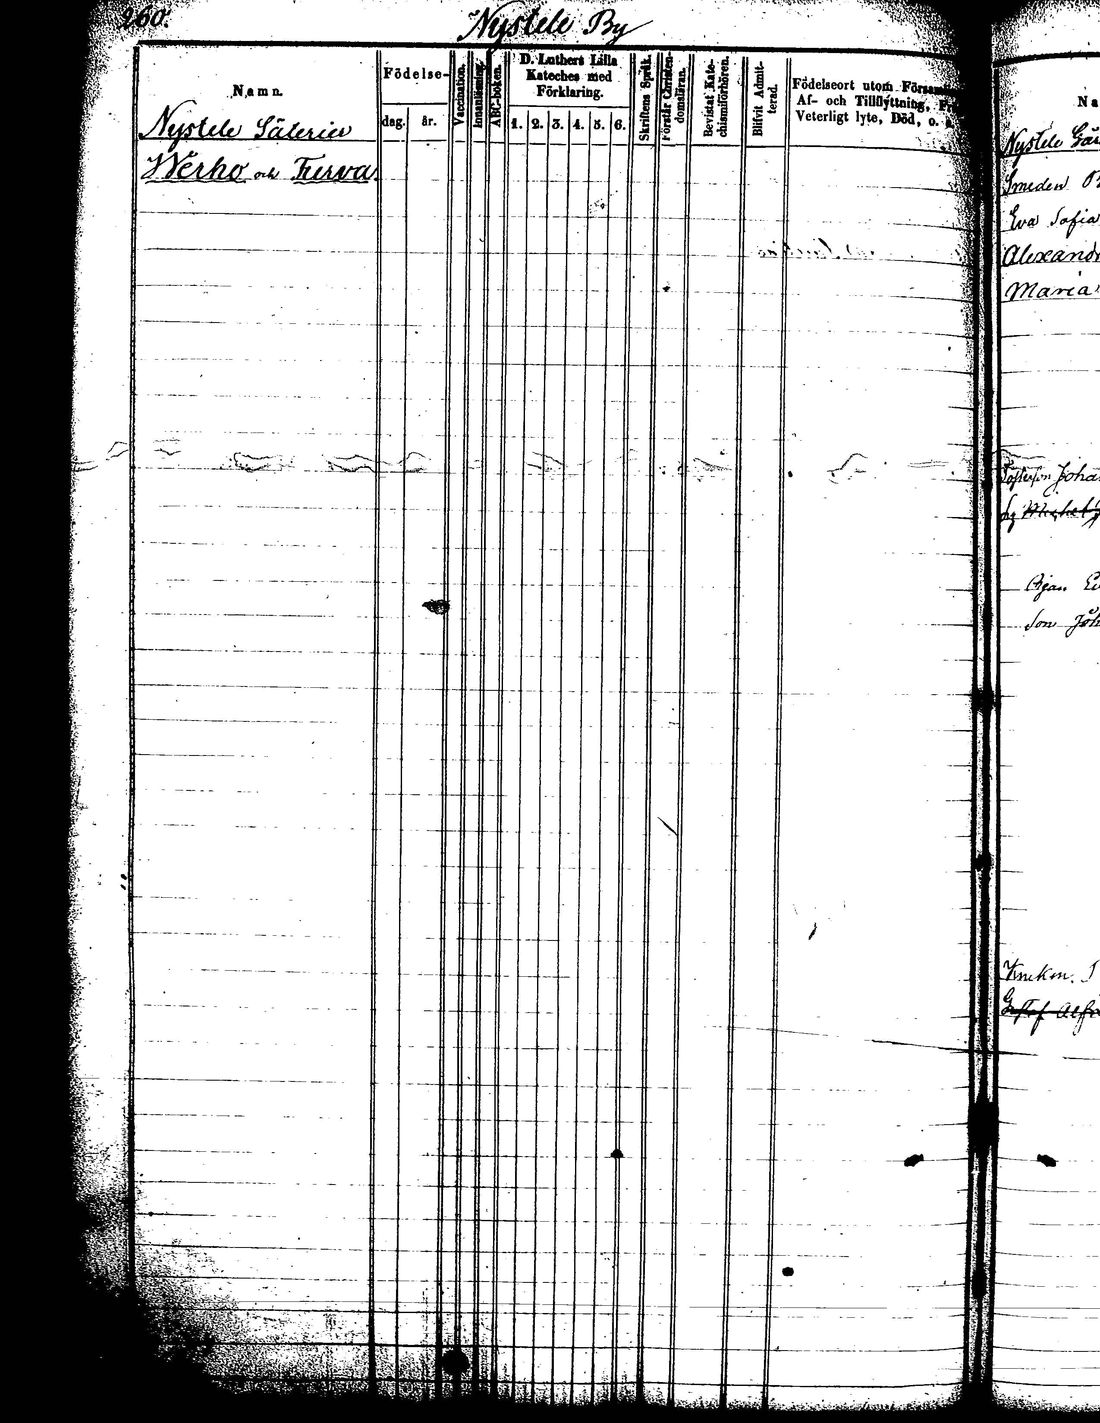 260.
Nystele By
Namn.
Födelse-
dag. år.
Vaccination.
Innanläsning.
ABC-boken.
D. Luthers Lilla
Kateches med
Förklaring.
1. 2. 3. 4. 5. 6.
Skriftens Språk.
Förstår Christen-
domsläran.
Bevistat Kate-
chismiförhören.
Blifvit Admit-
terad.
Födelseort utom Försam
Af- och Tillflyttning, F
Veterligt lyte, Död, o. s
Nystele Säterier
Werho och Turva.
Na
Nystele
Smeden
Eva Sofia
Alexand
Maria
Joha
Son Joh
Gustaf Alfr